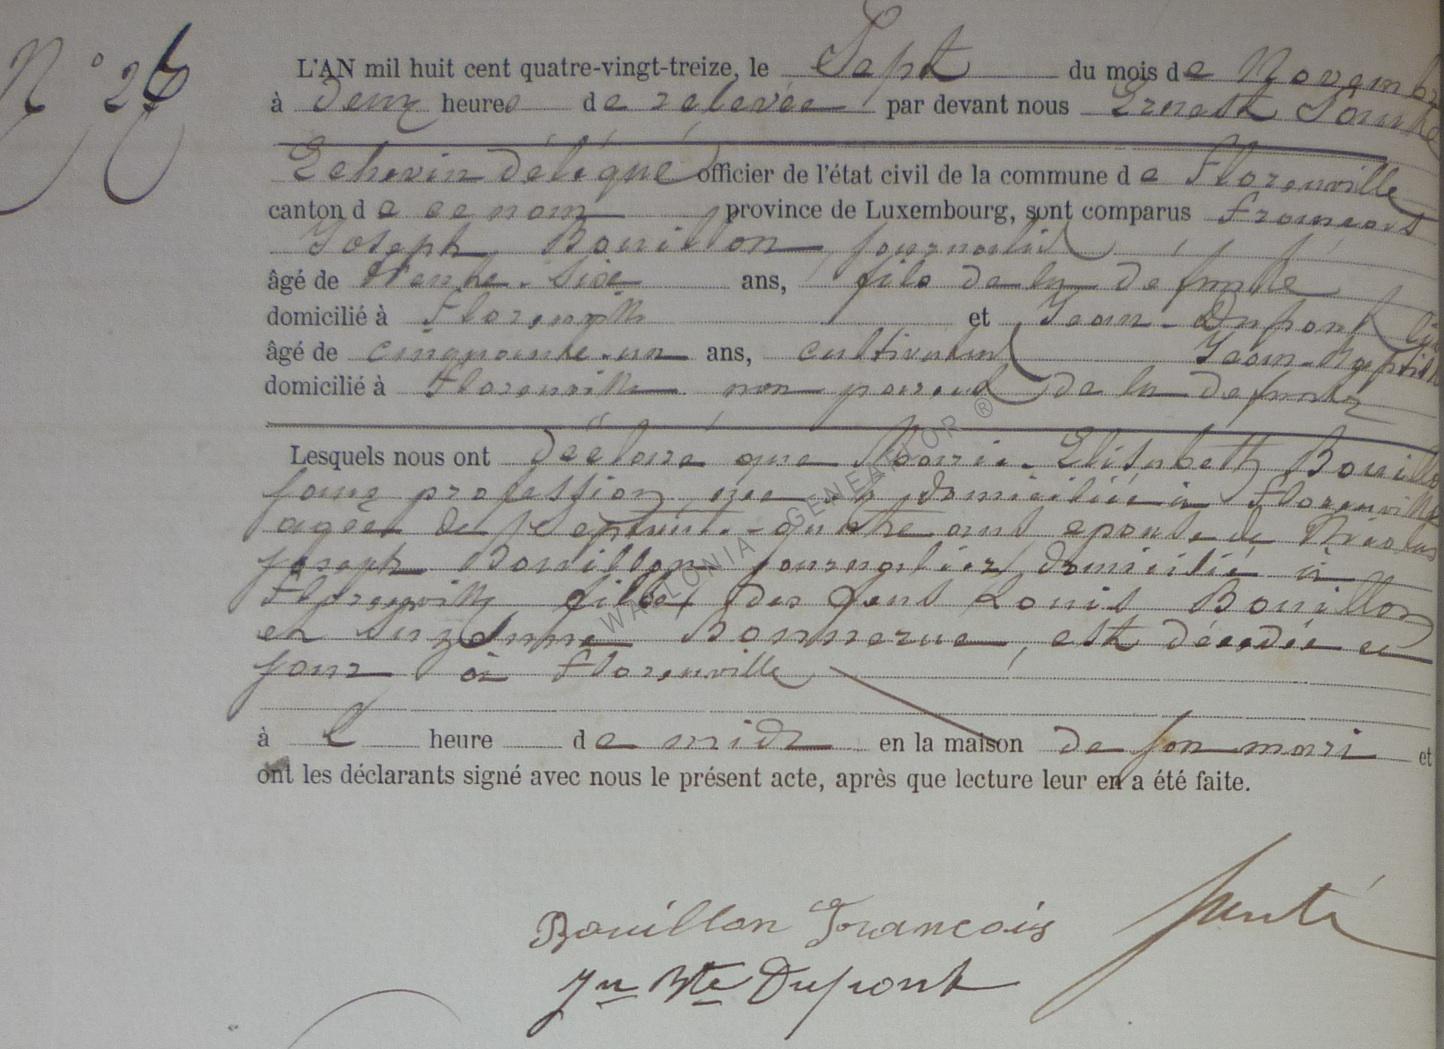 N° 26
L'AN mil huit cent quatre-vingt-treize, le Sept du mois de Novembre
à deux heures de relevée par devant nous Ernest
Echevin délégué officier de l'état civil de la commune de Florenville
canton de ce nom province de Luxembourg, sont comparus François
Joseph Bouillon journalier
âgé de trente-six ans, fils de la défunte
domicilié à Florenville et Jean-Dupont
âgé de cinquante-un ans, cultivateur Jean-Baptiste
domicilié à Florenville non parent de la défunte
Lesquels nous ont déclaré que Marie-Elisabeth Bouillon
sans profession née et domiciliée à Florenville
agée de septante-quatre ans epouse de Nicolas
Joseph Bouillon journalier domicilié à
Florenville, fille des feus Louis Bouillon
et Suzanne Bonnerue, est décedée ce
jour à Florenville
à l' heure de midi en la maison de son mari et
ont les déclarants signé avec nous le présent acte, après que lecture leur en a été faite.
Bouillon Francois
Jn Bte Dupont
WALLONIA GENEADOR ®